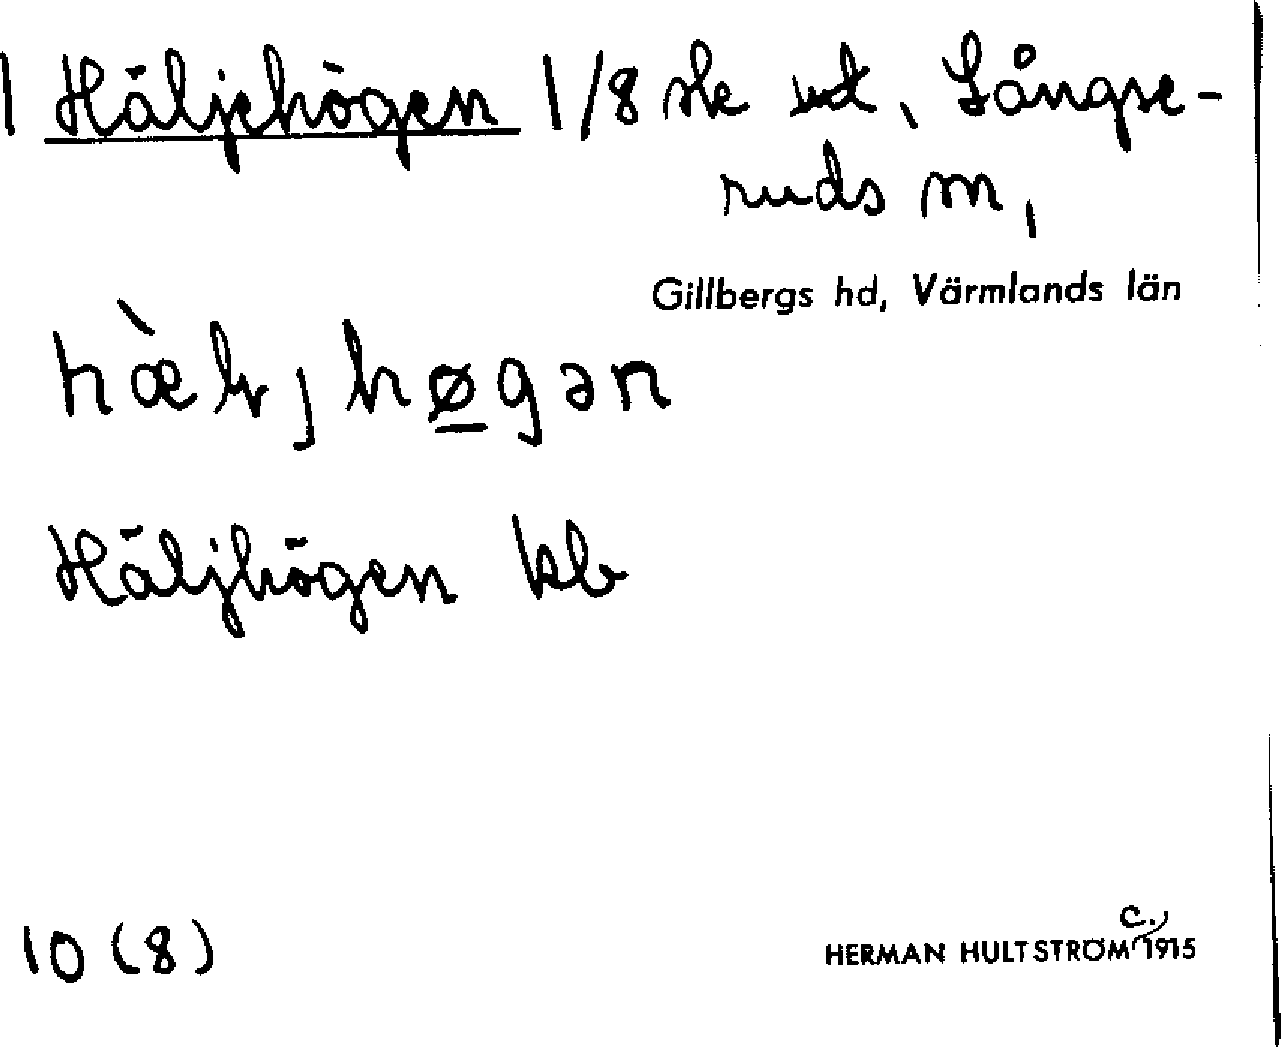 1 Häljehögen 1/8 ske ut, Långse-
ruds sn,
Gillbergs hd, Värmlands län
Häljhögen kb
10 (8)
HERMAN HULTSTRÖM c. 1915